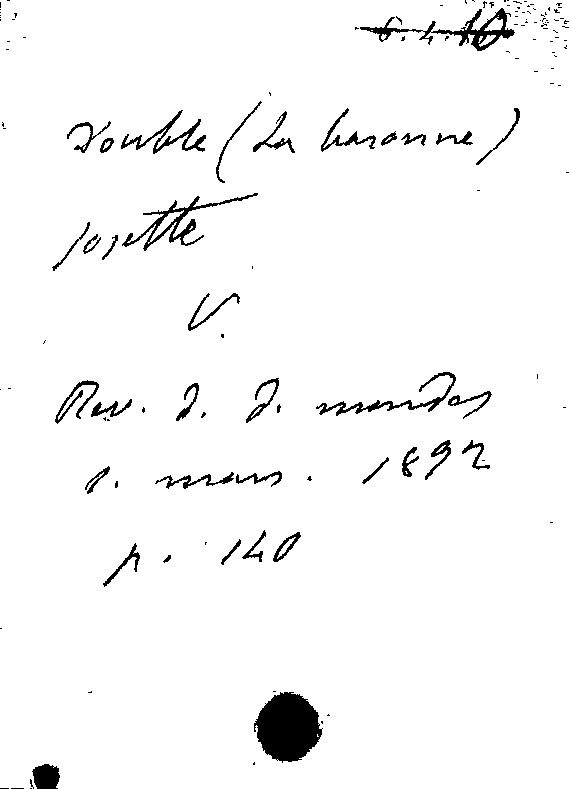 6.4.10
Double (La baronne)
Josette
V.
Rev. d. d. mondes
1. mars. 1892
p. 140